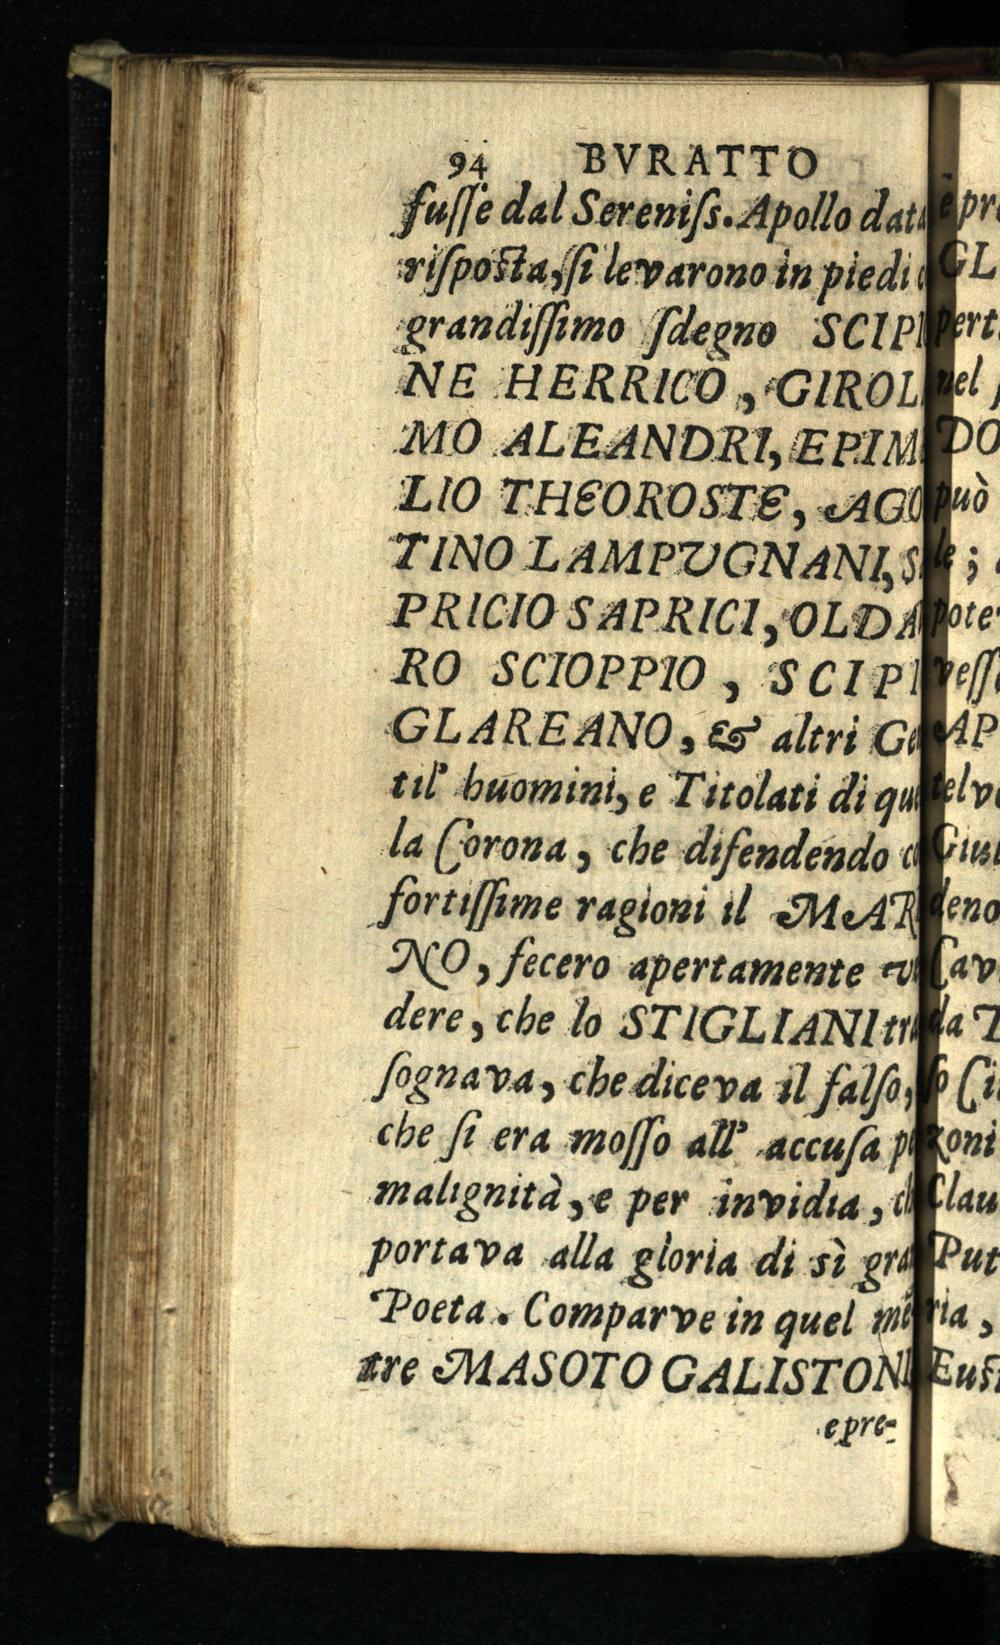 94 BVRATTO
fuſſe dal Sereniſs. Apollo data
riſpoſta, ſi levarono in piedi
grandiſſimo ſdegno SCIPI
NE HERRICO, GIROL
MO ALEANDRI, EPIM
LIO THEOROSTE, AGO
TINO LAMPUGNANI, S
PRICIO SAPRICI, OLDA
RO SCIOPPIO, SCIPI
GLAREANO, & altri Ge
til' huomini, e Titolati di que
la Corona, che difendendo co
fortiſſime ragioni il MAR
NO, fecero apertamente ve
dere, che lo STIGLIANI tra
ſognava, che diceva il falſo,
che ſi era moſſo all' accuſa pe
malignità, e per invidia, ch
portava alla gloria di sì gra
Poeta. Comparve in quel mẽ
tre MASOTO GALISTONI
e pre-
e pr
GL
pert
nel
DO
può
le;
pote
veſſ
AP
telve
Giu
deno
Cav
da
ſo Ci
zoni
Clau
Put
ria,
Euſt